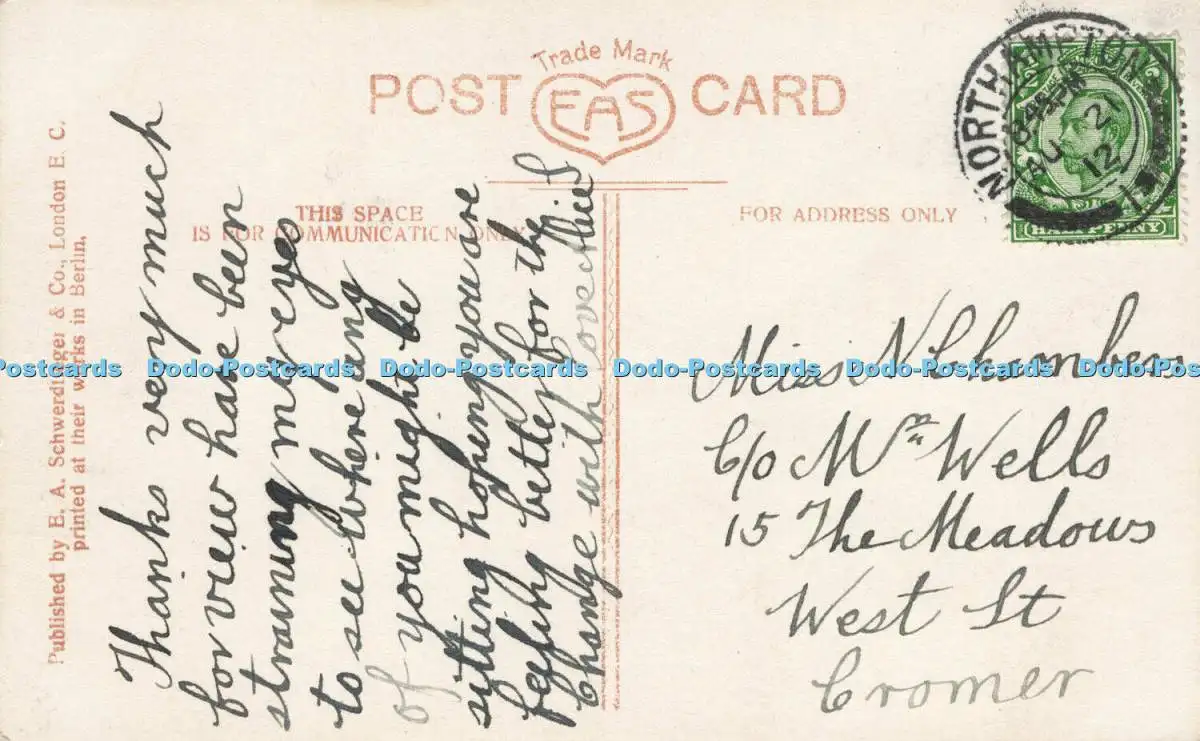 Trade Mark
POST EAS CARD
THIS SPACE
IS FOR COMMUNICATION ONLY
FOR ADDRESS ONLY
NORTHAMPTON
845PM
AU 21
12
HALFPENNY
Published by E. A. Schwerdtfeger & Co., London E. C.
printed at their works in Berlin,
Thanks very much
for view have been
straining my eyes
to see where any
of you might be
sitting hoping you are
feeling better for the
Change with love
Miss N Chambers
C/o Mrs Wells
15 The Meadows
West St
Cromer
Dodo-Postcards Dodo-Postcards Dodo-Postcards Dodo-Postcards Dodo-Postcards Dodo-Postcards Dodo-Postcards Dodo-Postcards